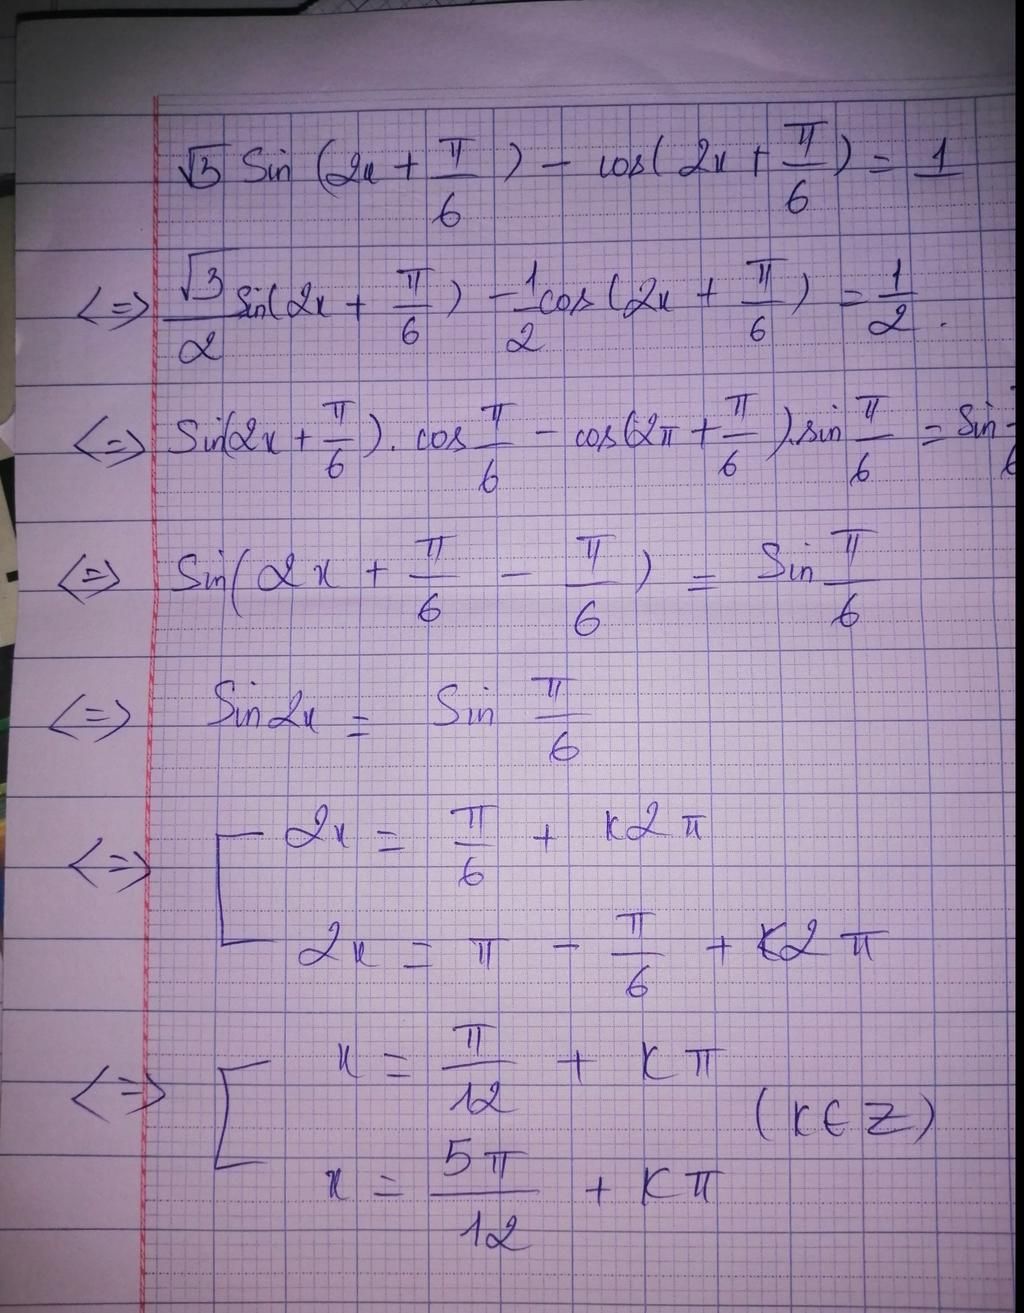 √3 Sin (2x + π/6) - cos(2x + π/6) = 1
<=> √3/2 Sin(2x + π/6) - 1/2 cos(2x + π/6) = 1/2.
<=> Sin(2x + π/6). cos π/6 - cos(2π + π/6).sin π/6 = Sin
<=> Sin(2x + π/6 - π/6) = Sin π/6
<=> Sin2x = Sin π/6
<=> [ 2x = π/6 + k2π
2x = π - π/6 + k2π
<=> [ x = π/12 + kπ
(k∈Z)
x = 5π/12 + kπ